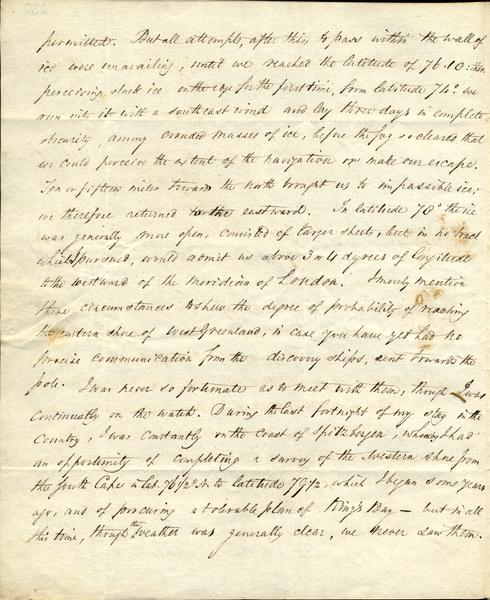 permitted. But all attempts, after this, to pass within the wall of
ice were unavailing, until we reached the latitude of 76.10: then
perceiving slack ice on the edge for the first time, from latitude 74° we
run into it with a south east wind and lay three days in complete
obscurity, among crowded masses of ice, before the fog so cleared that
we could perceive the extent of the navigation or make our escape.
Ten or fifteen miles towards the north brought us to impassible ice;
we therefore returned to the eastward. In latitude 78° the ice
was generally more open, consisted of larger sheets, but in no tract
which I pursued, would admit us above 3 or 4 degrees of Longitude
to the westward of the meridian of London. I merely mention
these circumstances to shew the degree of probability of reaching
the eastern shore of West Greenland, in case you have yet had no
precise communication from the discovery ships, sent towards the
pole. I was never so fortunate as to meet with them, though I was
continually on the watch. During the last fortnight of my stay in the
Country, I was constantly on the coast of Spitzbergen, whereby I had
an opportunity of completing a survey of the western shore from
the South Cape in Lat. 76½° N to latitude 79½, which I began some years
ago, and of procuring a tolerable plan of King's Bay — but in all
this time, though the weather was generally clear, we never saw them.